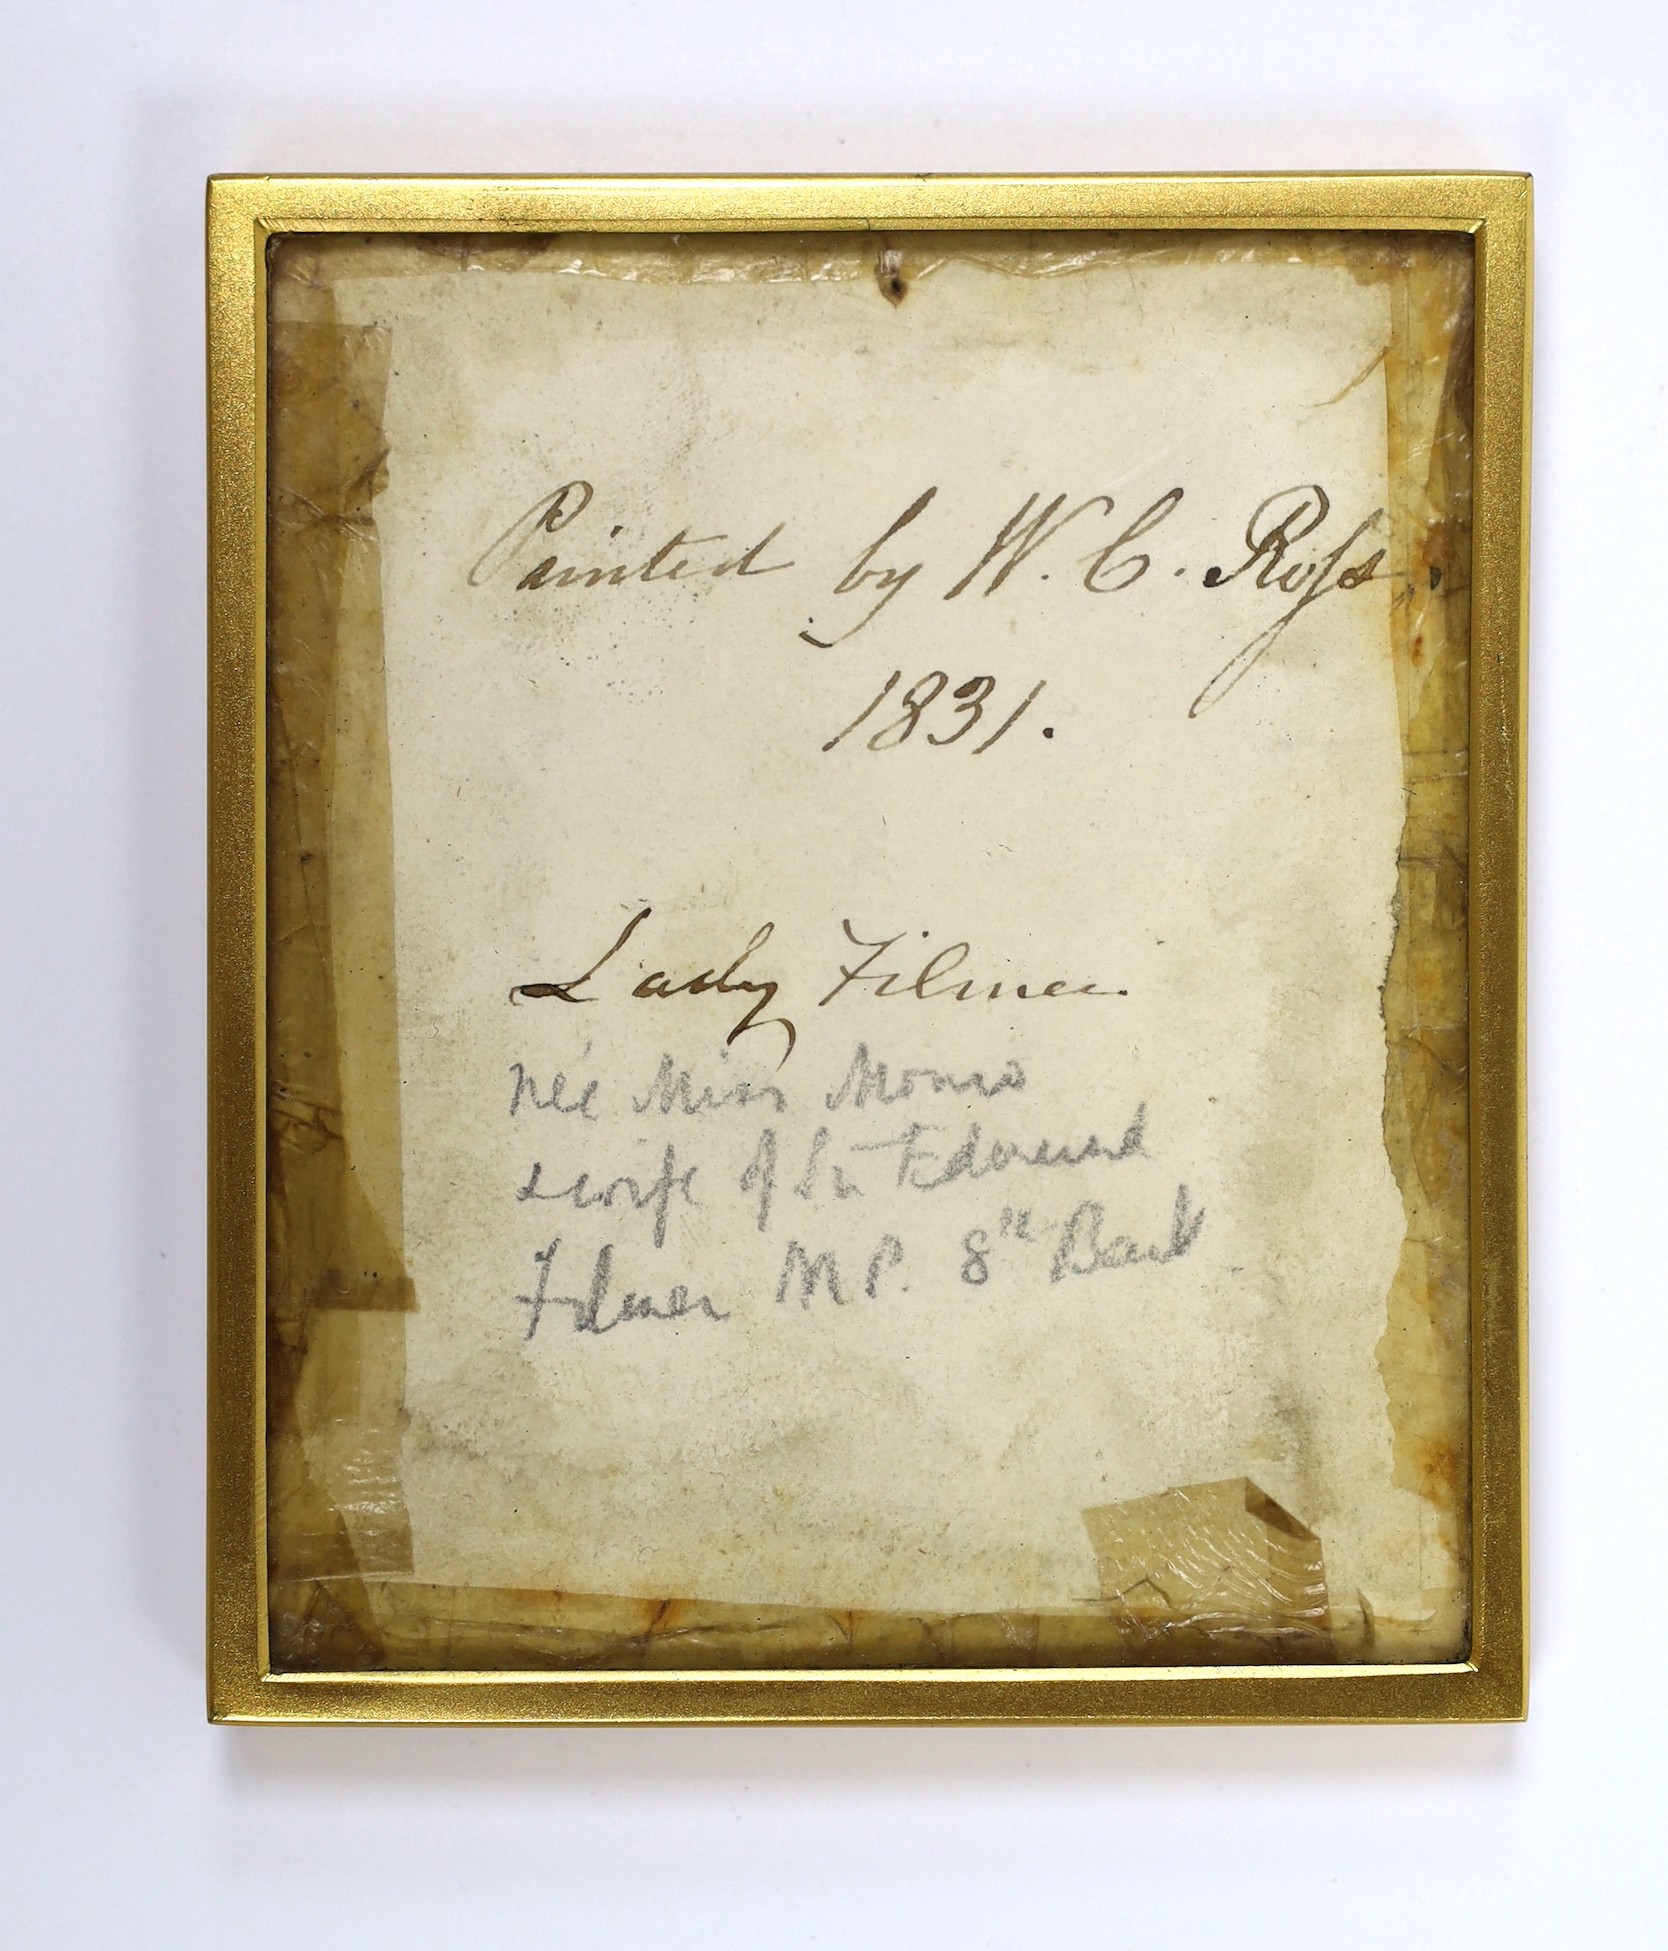 Painted by W. C. Roſs.
1831.
Lady Filmer.
née Miss Monro
& wife of Sir Edmund
Filmer M P. 8th Bart.